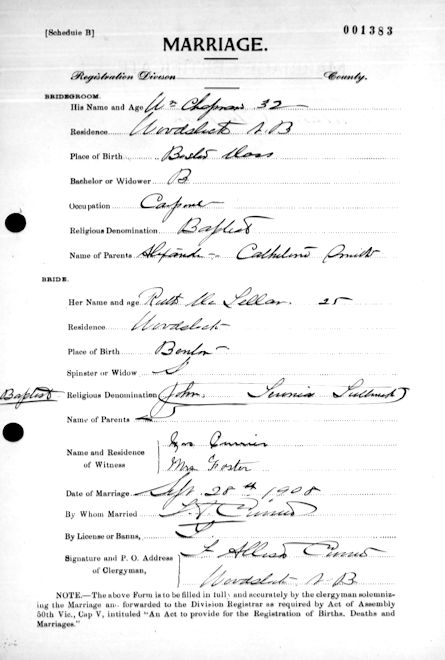 [Schedule B]
001383
MARRIAGE.
Registration Divison County.
BRIDEGROOM.
His Name and Age Wm Chapman 32
Residence Woodstock N B
Place of Birth Boston Mass
Bachelor or Widower B
Occupation
Religious Denomination Baptist
Name of Parents Catherine Smith
BRIDE.
Her Name and age Ruth Mc Lellan 25
Residence Woodstock
Place of Birth Benton
Spinster or Widow S
Baptist Religious Denomination John
Name of Parents
Name and Residence of Witness
Mrs Foster
Date of Marriage Sept. 28th 1908
By Whom Married
By License or Banns,
Signature and P. O. Address of Clergyman,
Woodstock N B
NOTE.—The above Form is to be filled in fully and accurately by the clergyman solemniz-
ing the Marriage and forwarded to the Division Registrar as required by Act of Assembly
50th Vic., Cap V, intituled "An Act to provide for the Registration of Births, Deaths and
Marriages."